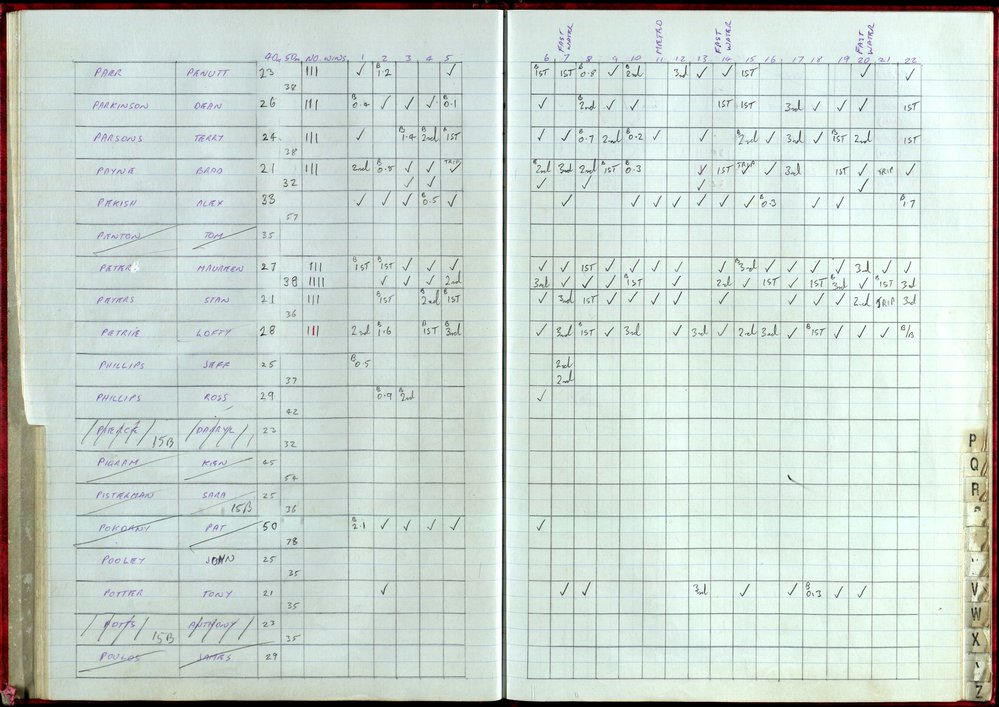 FAST WATER METRO FAST WATER FAST WATER
40m 50m NO. WINS 1 2 3 4 5 6 7 8 9 10 11 12 13 14 15 16 17 18 19 20 21 22
PARR PENUTT 23 III ✓ B 1.2 ✓ B 1ST 1ST B 0.8 ✓ B 2nd 3rd ✓ ✓ 1ST ✓ ✓
38
PARKINSON DEAN 26 III B 0.4 ✓ ✓ ✓ B 0.1 ✓ B 2nd ✓ ✓ 1ST 1ST 3rd ✓ ✓ ✓ 1ST
PARSONS TERRY 24 III ✓ B 1.4 B 2nd 1ST ✓ ✓ B 0.7 2nd B 0.2 ✓ ✓ B 2nd ✓ 3rd ✓ B 1ST 2nd 1ST
38
PAYNE BRAD 21 III 2nd B 0.5 ✓ ✓ TRIP ✓ B 2nd 3rd 2nd B 1ST B 0.3 ✓ 1ST TRIP ✓ ✓ 3rd 1ST ✓ TRIP ✓
32 ✓ ✓ ✓ ✓ ✓ ✓
PEKISH ALEX 33 ✓ ✓ ✓ B 0.5 ✓ ✓ ✓ ✓ ✓ ✓ ✓ ✓ B 0.3 ✓ ✓ B 1.7
57
PENTON TOM 35
PETERS MAUREEN 27 III B 1ST B 1ST ✓ ✓ ✓ ✓ ✓ 1ST ✓ ✓ ✓ ✓ ✓ B 3rd ✓ ✓ ✓ ✓ 3rd ✓ ✓
38 IIII ✓ ✓ ✓ 2nd 3rd ✓ ✓ ✓ B 1ST ✓ 2nd ✓ 1ST ✓ 1ST B 3rd ✓ B 1ST 3rd
PETERS STAN 21 III B 1ST B 2nd B 1ST ✓ 3rd 1ST ✓ ✓ ✓ ✓ ✓ ✓ ✓ ✓ 2nd TRIP 3rd
36
PETRIE LOFTY 28 III 2nd B 1.6 B 1ST B 3rd ✓ 3rd B 1ST ✓ 3rd ✓ 3rd ✓ 2nd 3rd ✓ B 1ST ✓ ✓ ✓ B/B
PHILLIPS JEFF 25 B 0.5 2nd
37 2nd
PHILLIPS ROSS 29 B 0.9 B 2nd ✓
42
PIERCE DARRYL 23
15B 32
PIGRAM KIEN 45
54
PISTERMAN SARA 25
15B 36
POKDANY PAT 50 B 2.1 ✓ ✓ ✓ ✓ ✓
78
POOLEY JOHN 25
35
POTTER TONY 21 ✓ ✓ ✓ 3rd ✓ ✓ B 0.3 ✓ ✓
35
POTTS ANTHONY 23
15B 35
POULOS JAMES 29
P
Q
R
V
W
X
Z